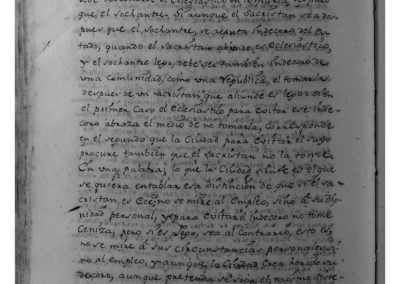 que, el sochantre. Si aunque el sacristan sea des
pues que el sochantre, se reputa indecoro, del Es
tado; quando el sacristan ahiendo, es Eclesiastico,
y el sochantre lego, debe ser tambien indecoro de
una comunidad, como una republica, el tomarla
despues de un sacristan que aliunde es lego: si en
el primer caso el Eclesiastico para evitar ese inde
coro abraza el medio de no tomarla, corresponde
en el segundo que la Ciudad para evitar el suyo
procure tambien que el sacristan no la tome.
En una palabra; lo que la Ciudad siente es el que
se quiera entablar esa distincion de que si el sa
cristan, es no se mire al Empleo, sino á su dig
nidad personal, y para evitar el indecoro no tome
Ceniza; pero si es Lego, sea al contrario, esto es,
no se mire á sus circunstancias personales, si
no al empleo, y aunque la Ciudad crea herido su
decoro, aunque pretenda se siga el mismo siste-